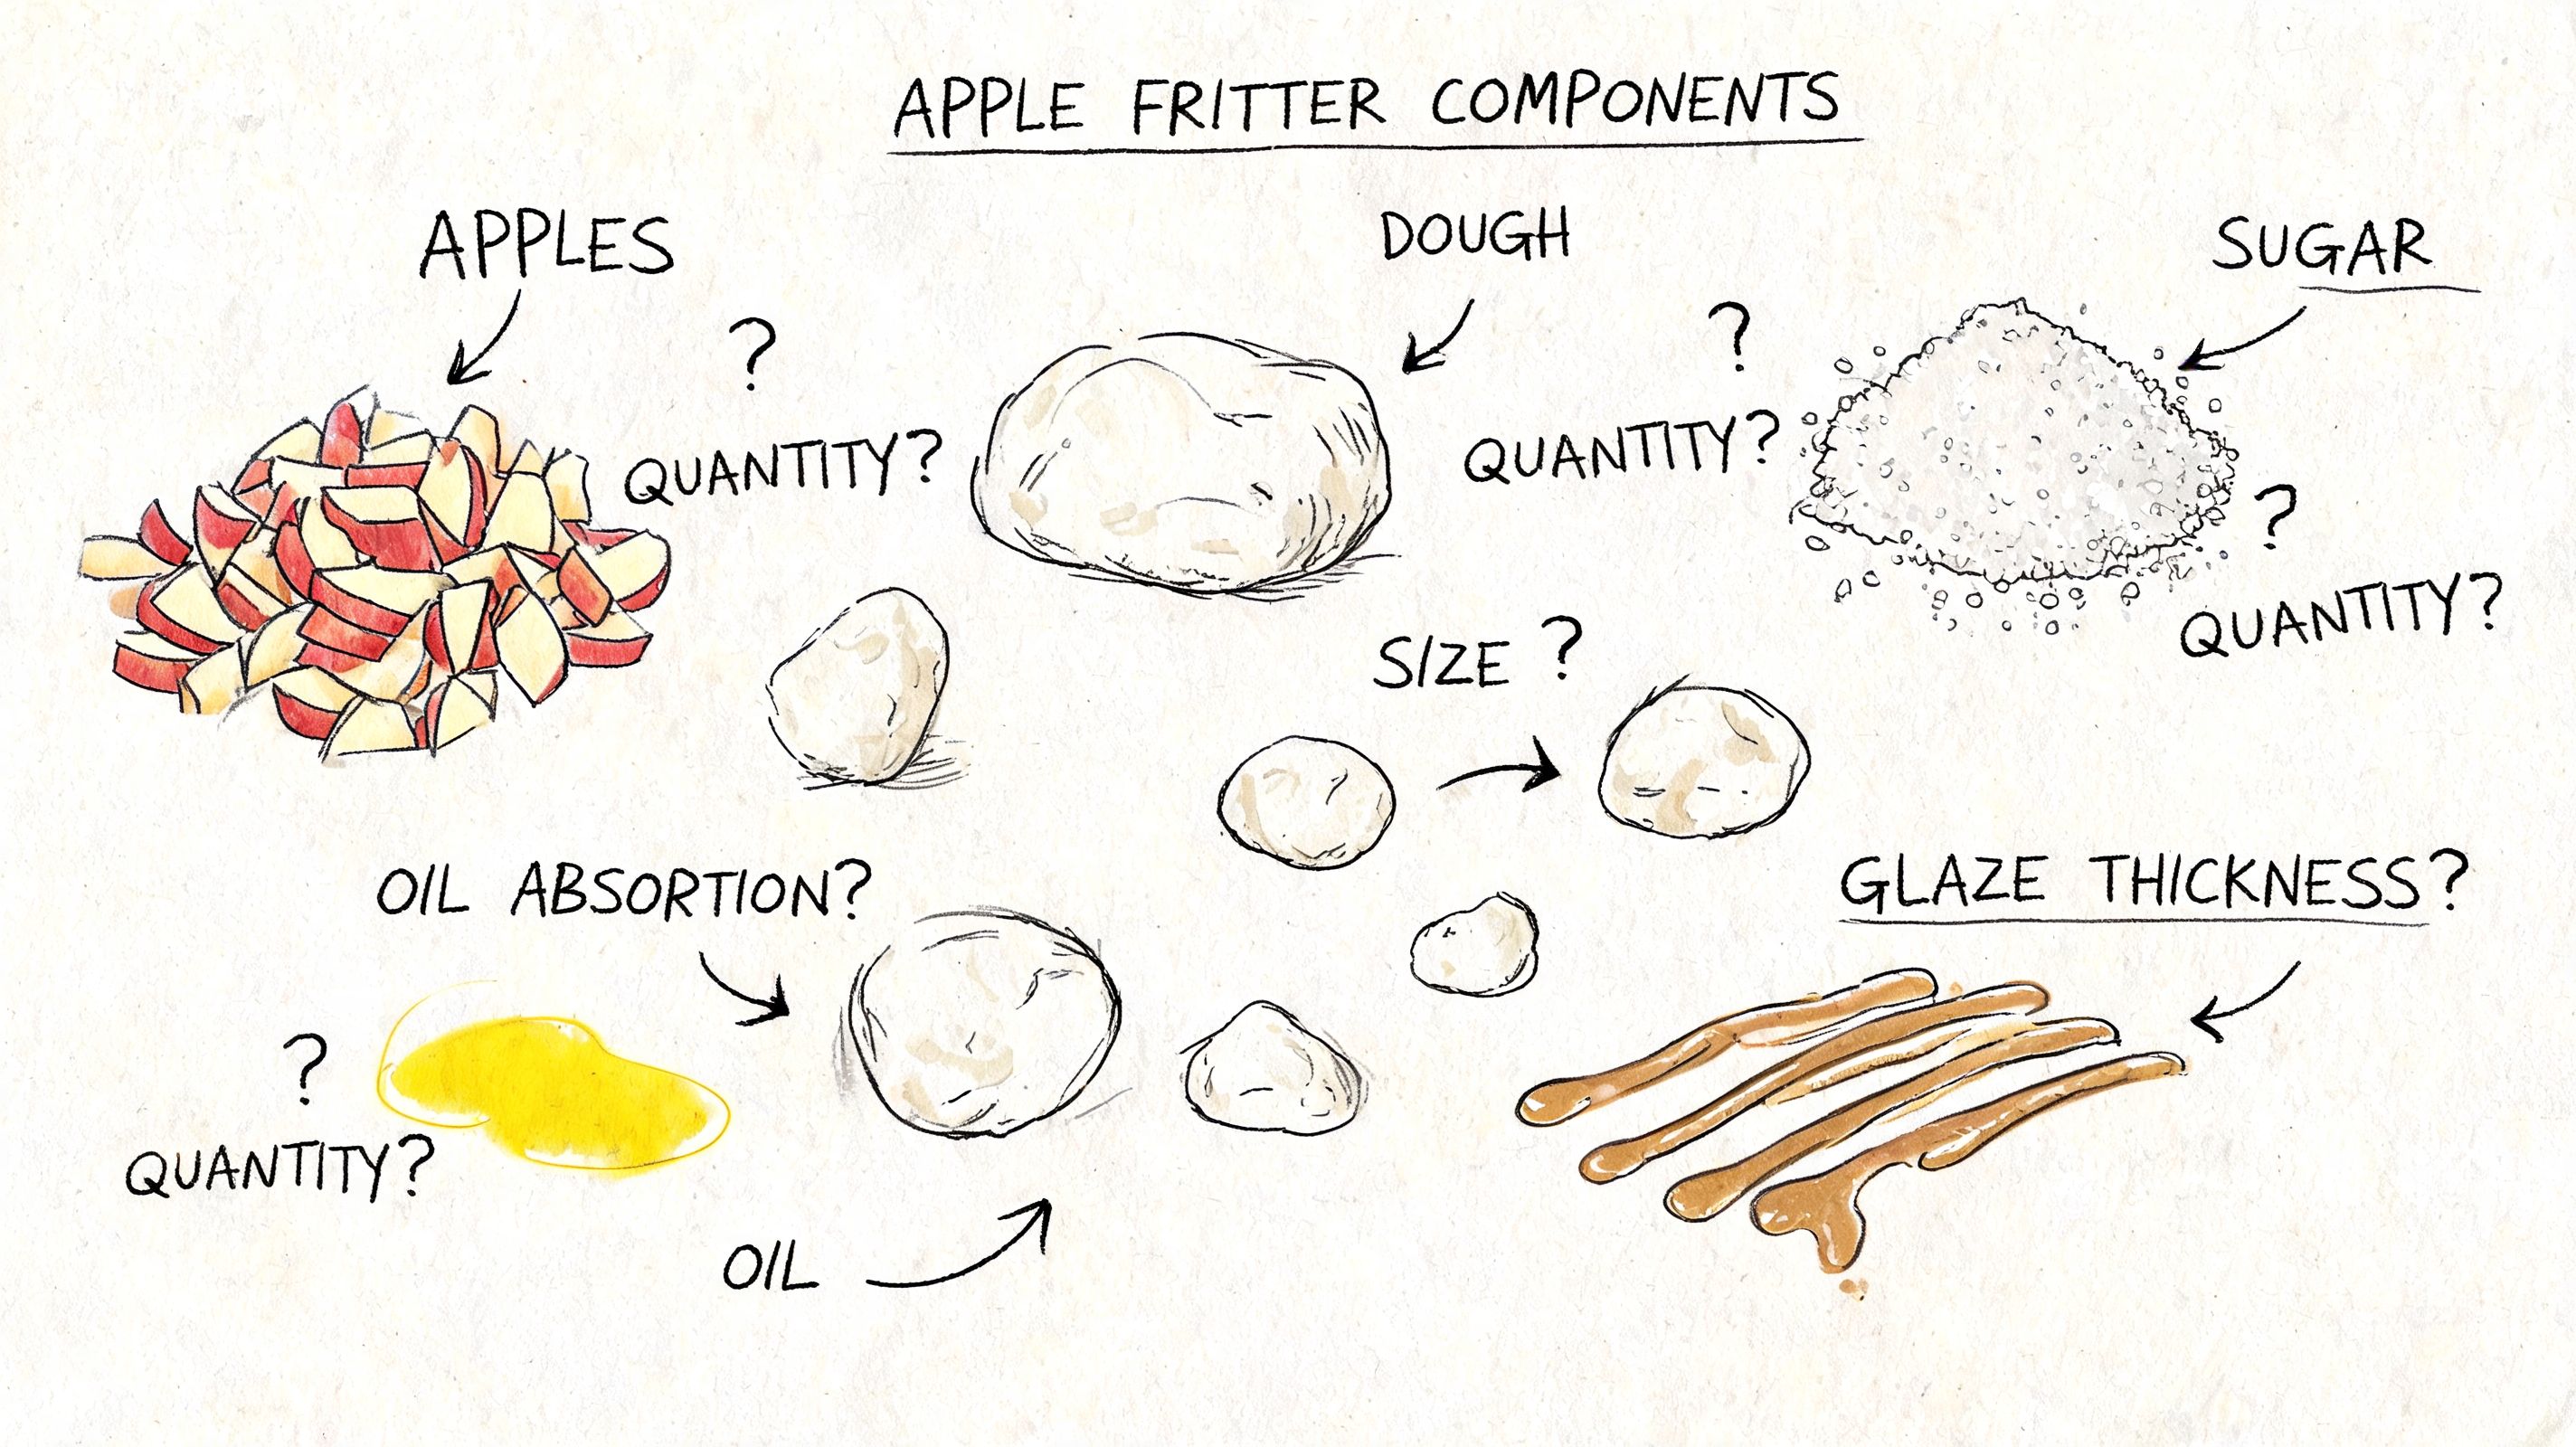 APPLE FRITTER COMPONENTS
APPLES
DOUGH
SUGAR
?
QUANTITY?
?
QUANTITY?
?
QUANTITY?
SIZE ?
OIL ABSORTION?
GLAZE THICKNESS?
?
QUANTITY?
OIL